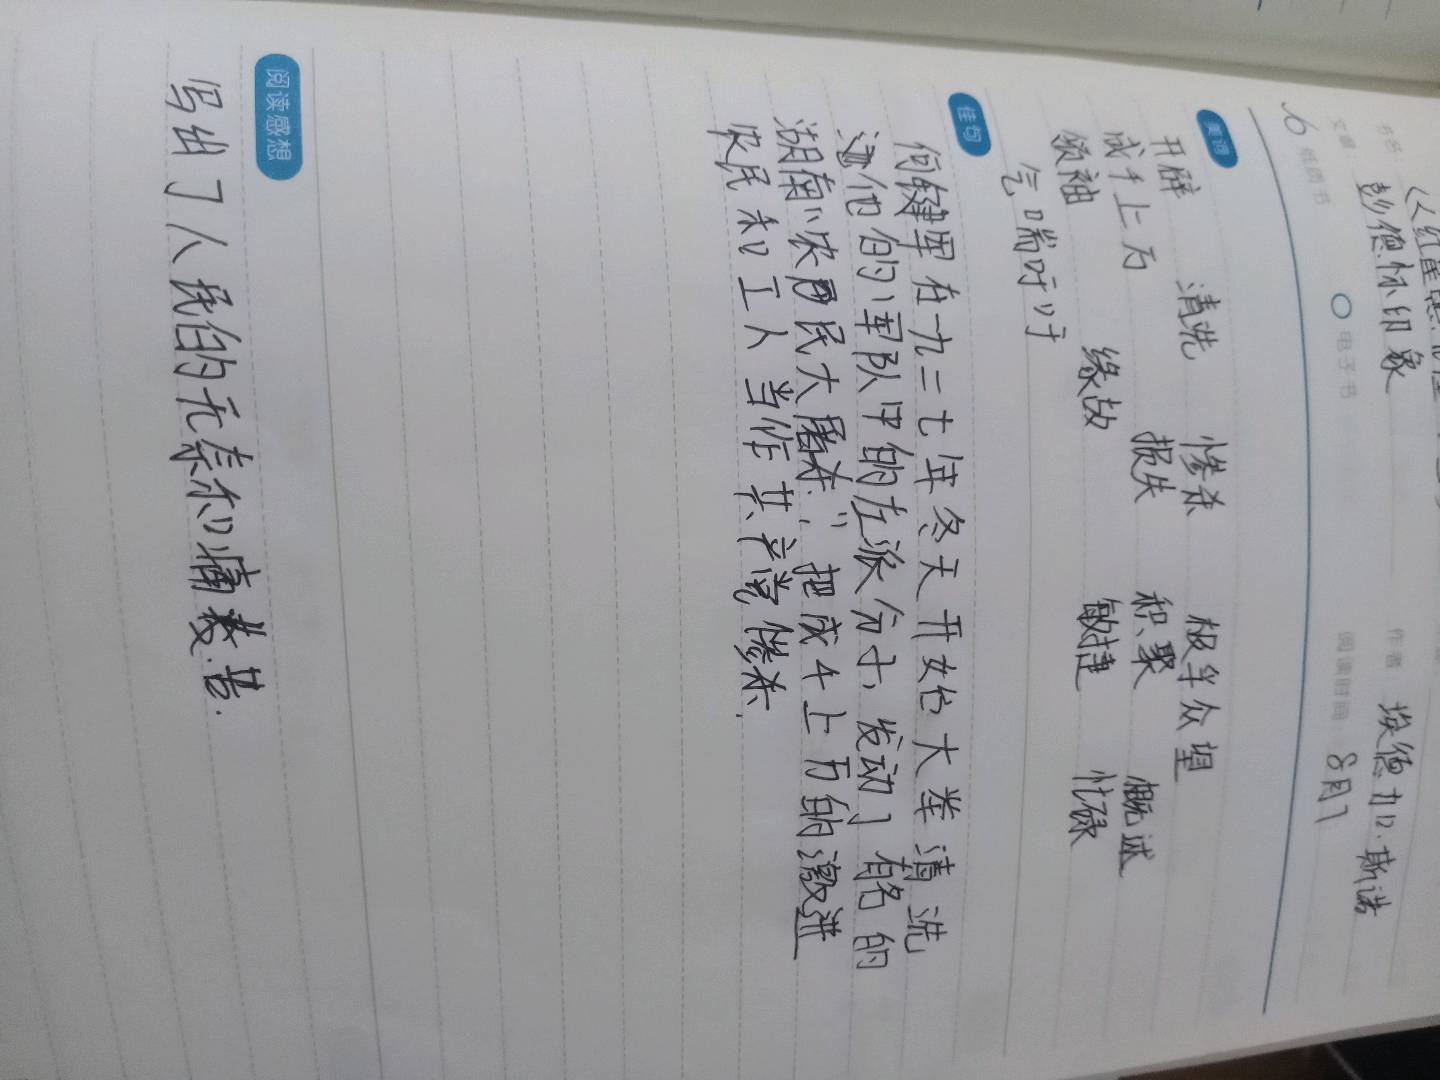 书名：《红星照
文章：彭德怀印象 作者 埃德加·斯诺
纸质书 电子书 阅读时间 8月
美词
开辟 清洗 惨杀 极孚众望
成千上万 损失 积聚 概述
领袖 缘故 敏捷 忙碌
气喘吁吁
佳句
何键军在一九二七年冬天开始大举清洗
他们的军队中的左派分子，发动了有名的
湖南“农民大屠杀，”把成千上万的激进
农民和工人当作共产党惨杀.
阅读感想
写出了人民的无奈和痛苦.